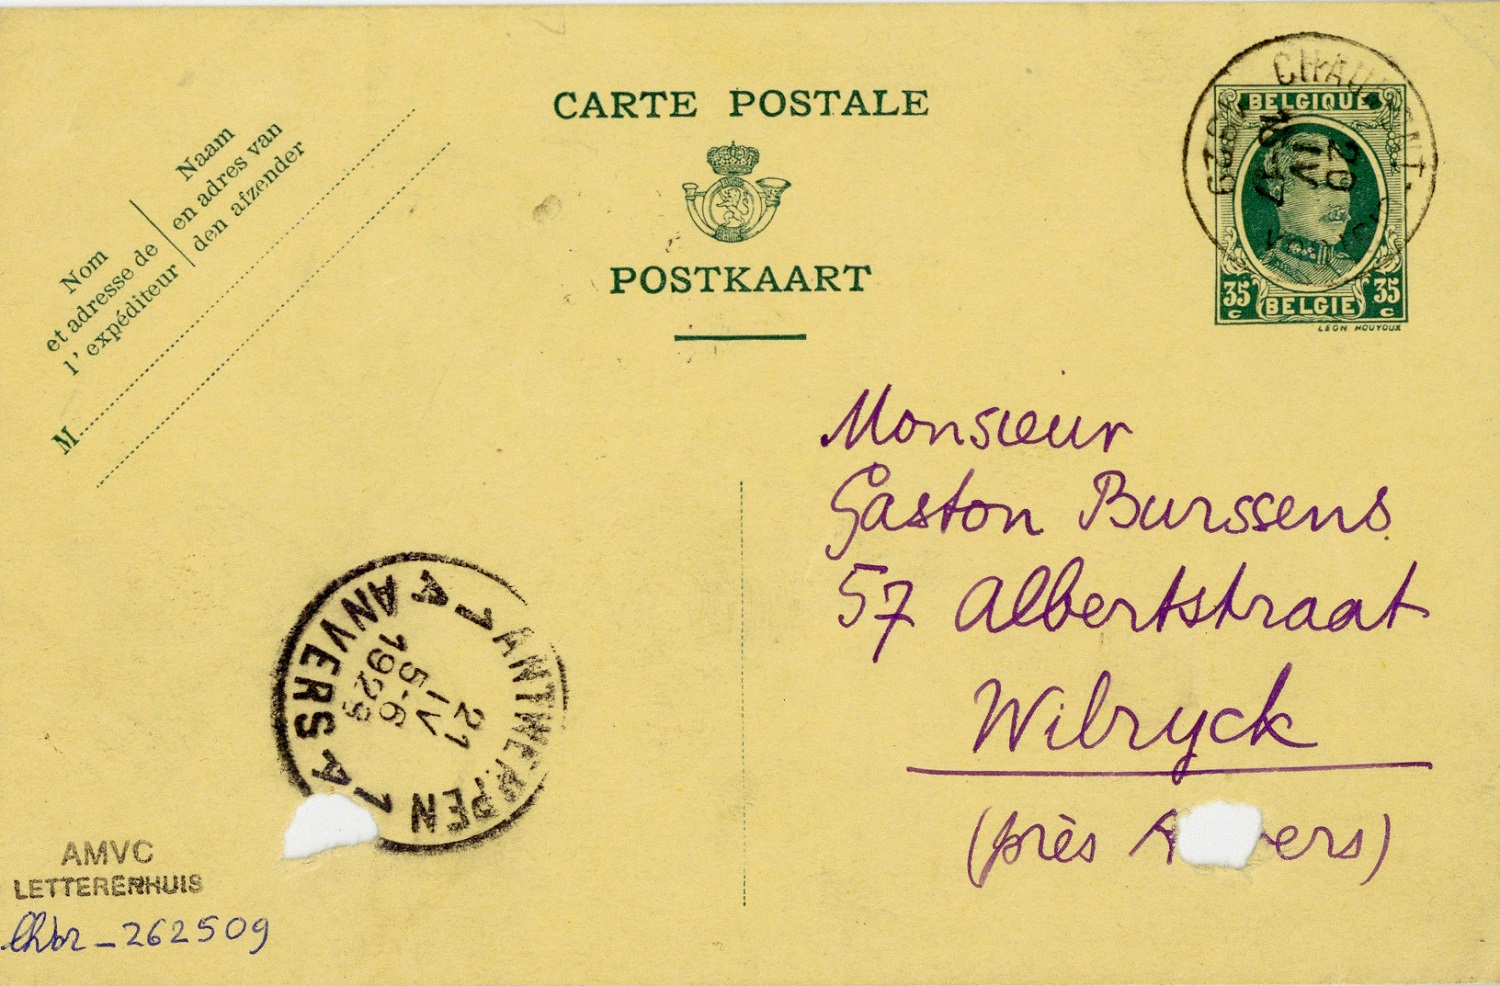 CARTE POSTALE
POSTKAART
Nom
et adresse de
l'expéditeur
Naam
en adres van
den afzender
M
BELGIQUE
35 c
BELGIE
35 c
LEON HOUYOUX
20
IV
1929
Monsieur
Gaston Burssens
57 Albertstraat
Wilryck
(près A vers)
ANTWERPEN 1
A ANVERS A 1
21
IV
5-6
1929
AMVC
LETTERENHUIS
262509